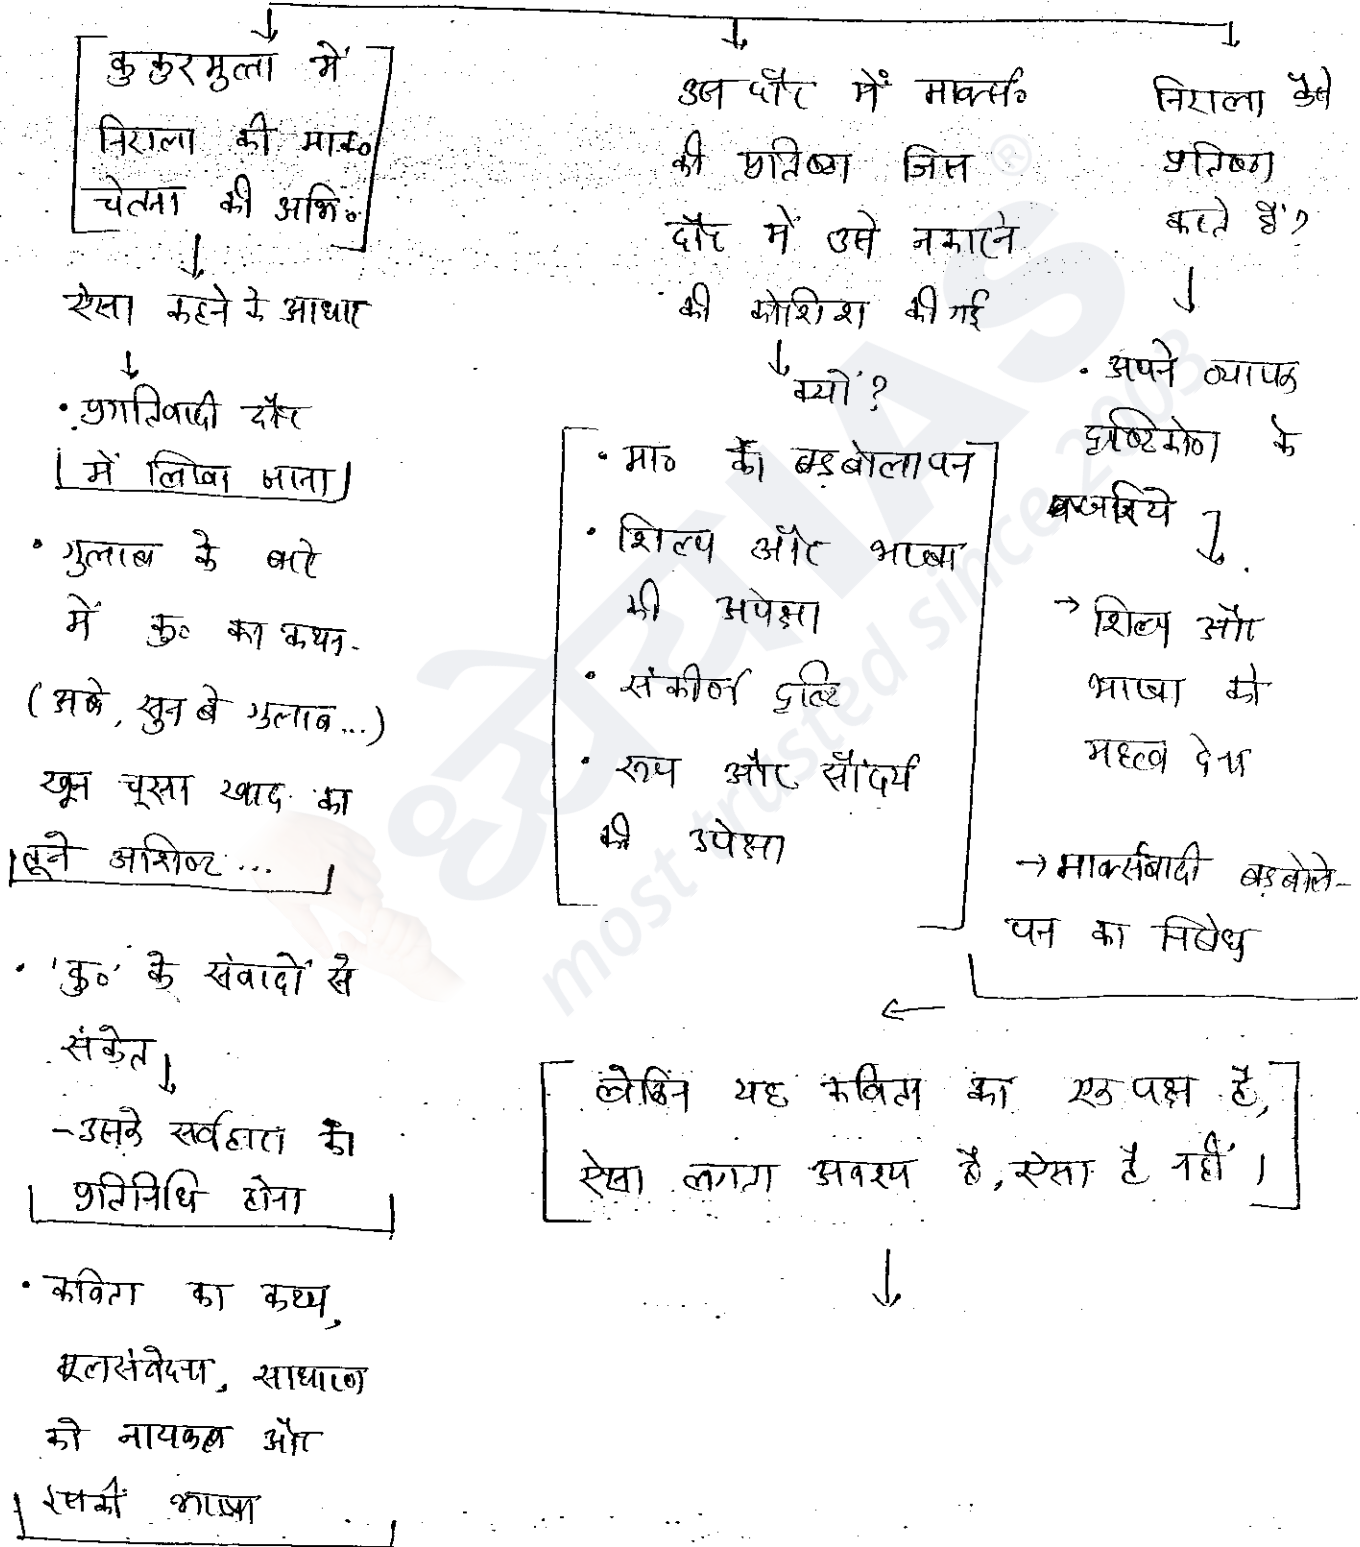 कुकुरमुत्ता में
निराला की मार्क०
चेतना की अभि०
ऐसा कहने के आधार
• प्रगतिवादी दौर
में लिखा जाना
• गुलाब के बारे
में कु० का कथन-
(अबे, सुन बे गुलाब...)
खून चूसा खाद का
तूने अशिष्ट ...
• 'कु०' के संवादों से
संकेत
- उसके सर्वहारा का
प्रतिनिधि होना
• कविता का कथ्य,
मूलसंवेदना, साधारण
को नायकत्व और
इसकी भाषा
उस दौर में मार्क्स०
की प्रतिष्ठा जिस
दौर में उसे नकारने
की कोशिश की गई
क्यों?
• मा० का बड़बोलापन
• शिल्प और भाषा
की अपेक्षा
• संकीर्ण दृष्टि
• रूप और सौंदर्य
की उपेक्षा
निराला कैसे
प्रतिष्ठा
करते हैं?
• अपने व्यापक
दृष्टिकोण के
जरिये
→ शिल्प और
भाषा को
महत्व देना
→ मार्क्सवादी बड़बोले-
पन का निषेध
लेकिन यह कविता का एक पक्ष है,
ऐसा लगता अवश्य है, ऐसा है नहीं।
ध्येय IAS
most trusted since 2003